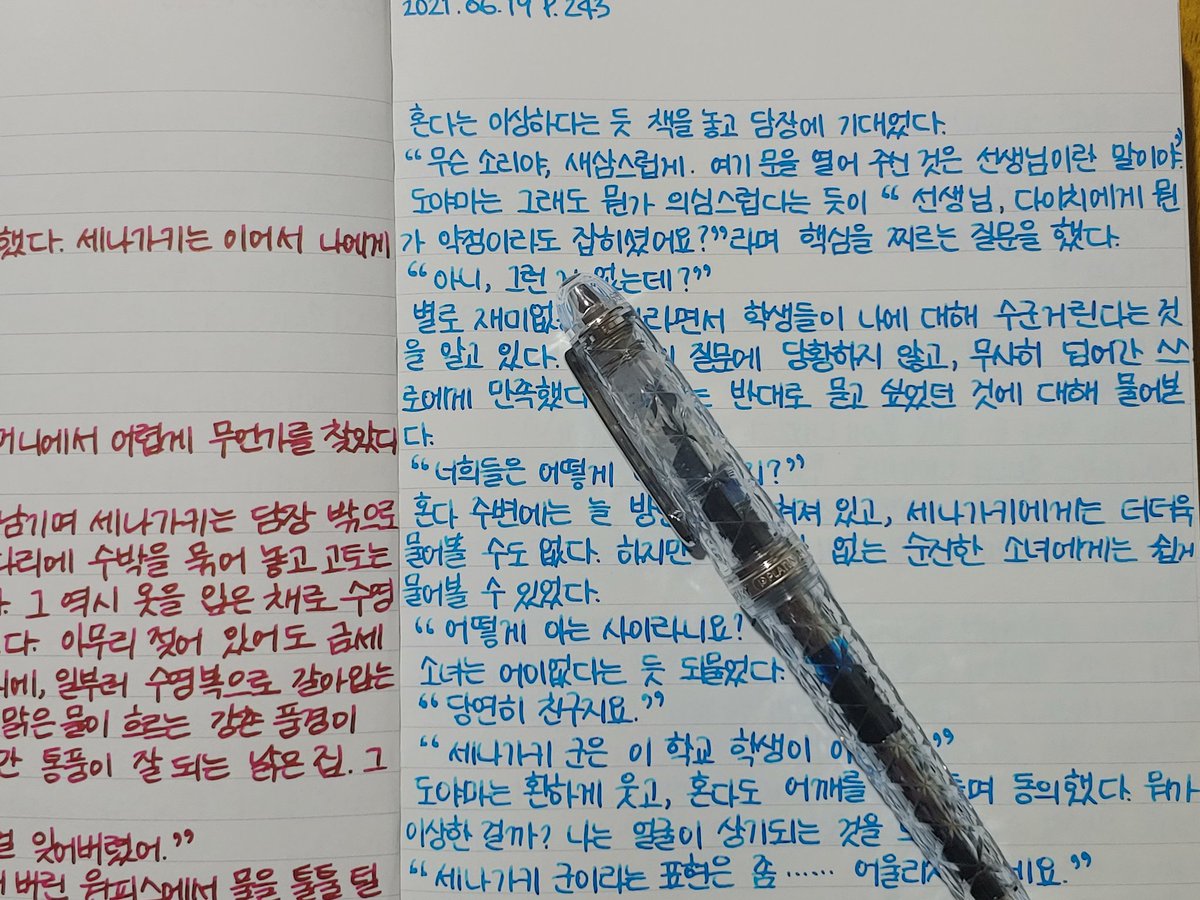 했다. 세나가키는 이어서 나에게
어렵게 무언가를 찾았다
세나가키는 담장 밖으로
다리에 수박을 묶어 놓고 고토는
그 역시 옷을 입은 채로 수영
다. 아무리 젖어 있어도 금세
일부러 수영복으로 갈아입는
맑은 물이 흐르는 강촌 풍경이
통풍이 잘 되는 낡은 집. 그
잊어버렸어.”
버린 원피스에서 물을 툴툴 털
2021.06.19 P.243
혼다는 이상하다는 듯 책을 놓고 담장에 기대었다.
“무슨 소리야, 새삼스럽게. 여기 문을 열어 주신 것은 선생님이란 말이야”
도야마는 그래도 뭔가 의심스럽다는 듯이 “ 선생님, 다이치에게 뭔
가 약점이라도 잡히셨어요?”라며 핵심을 찌르는 질문을 했다.
“아니, 그런 없는데?”
별로 재미없 라면서 학생들이 나에 대해 수군거린다는 것
을 알고 있다. 질문에 당황하지 않고, 무사히 넘어간 스스
로에게 만족했다 반대로 묻고 싶었던 것에 대해 물어본
다.
“너희들은 어떻게 ?”
혼다 주변에는 늘 쳐져 있고, 세나가키에게는 더더욱
물어볼 수도 없다. 하지만 없는 순진한 소녀에게는 쉽게
물어볼 수 있었다.
“ 어떻게 아는 사이라니요?
소녀는 어이없다는 듯 되물었다.
“당연히 친구지요.”
“세나가키 군은 이 학교 학생이 ”
도야마는 환하게 웃고, 혼다도 어깨를 며 동의했다. 뭐가
이상한 걸까? 나는 얼굴이 상기되는 것을
“세나가키 군이라는 표현은 좀…… 어울리지 네요.”
PLATIN